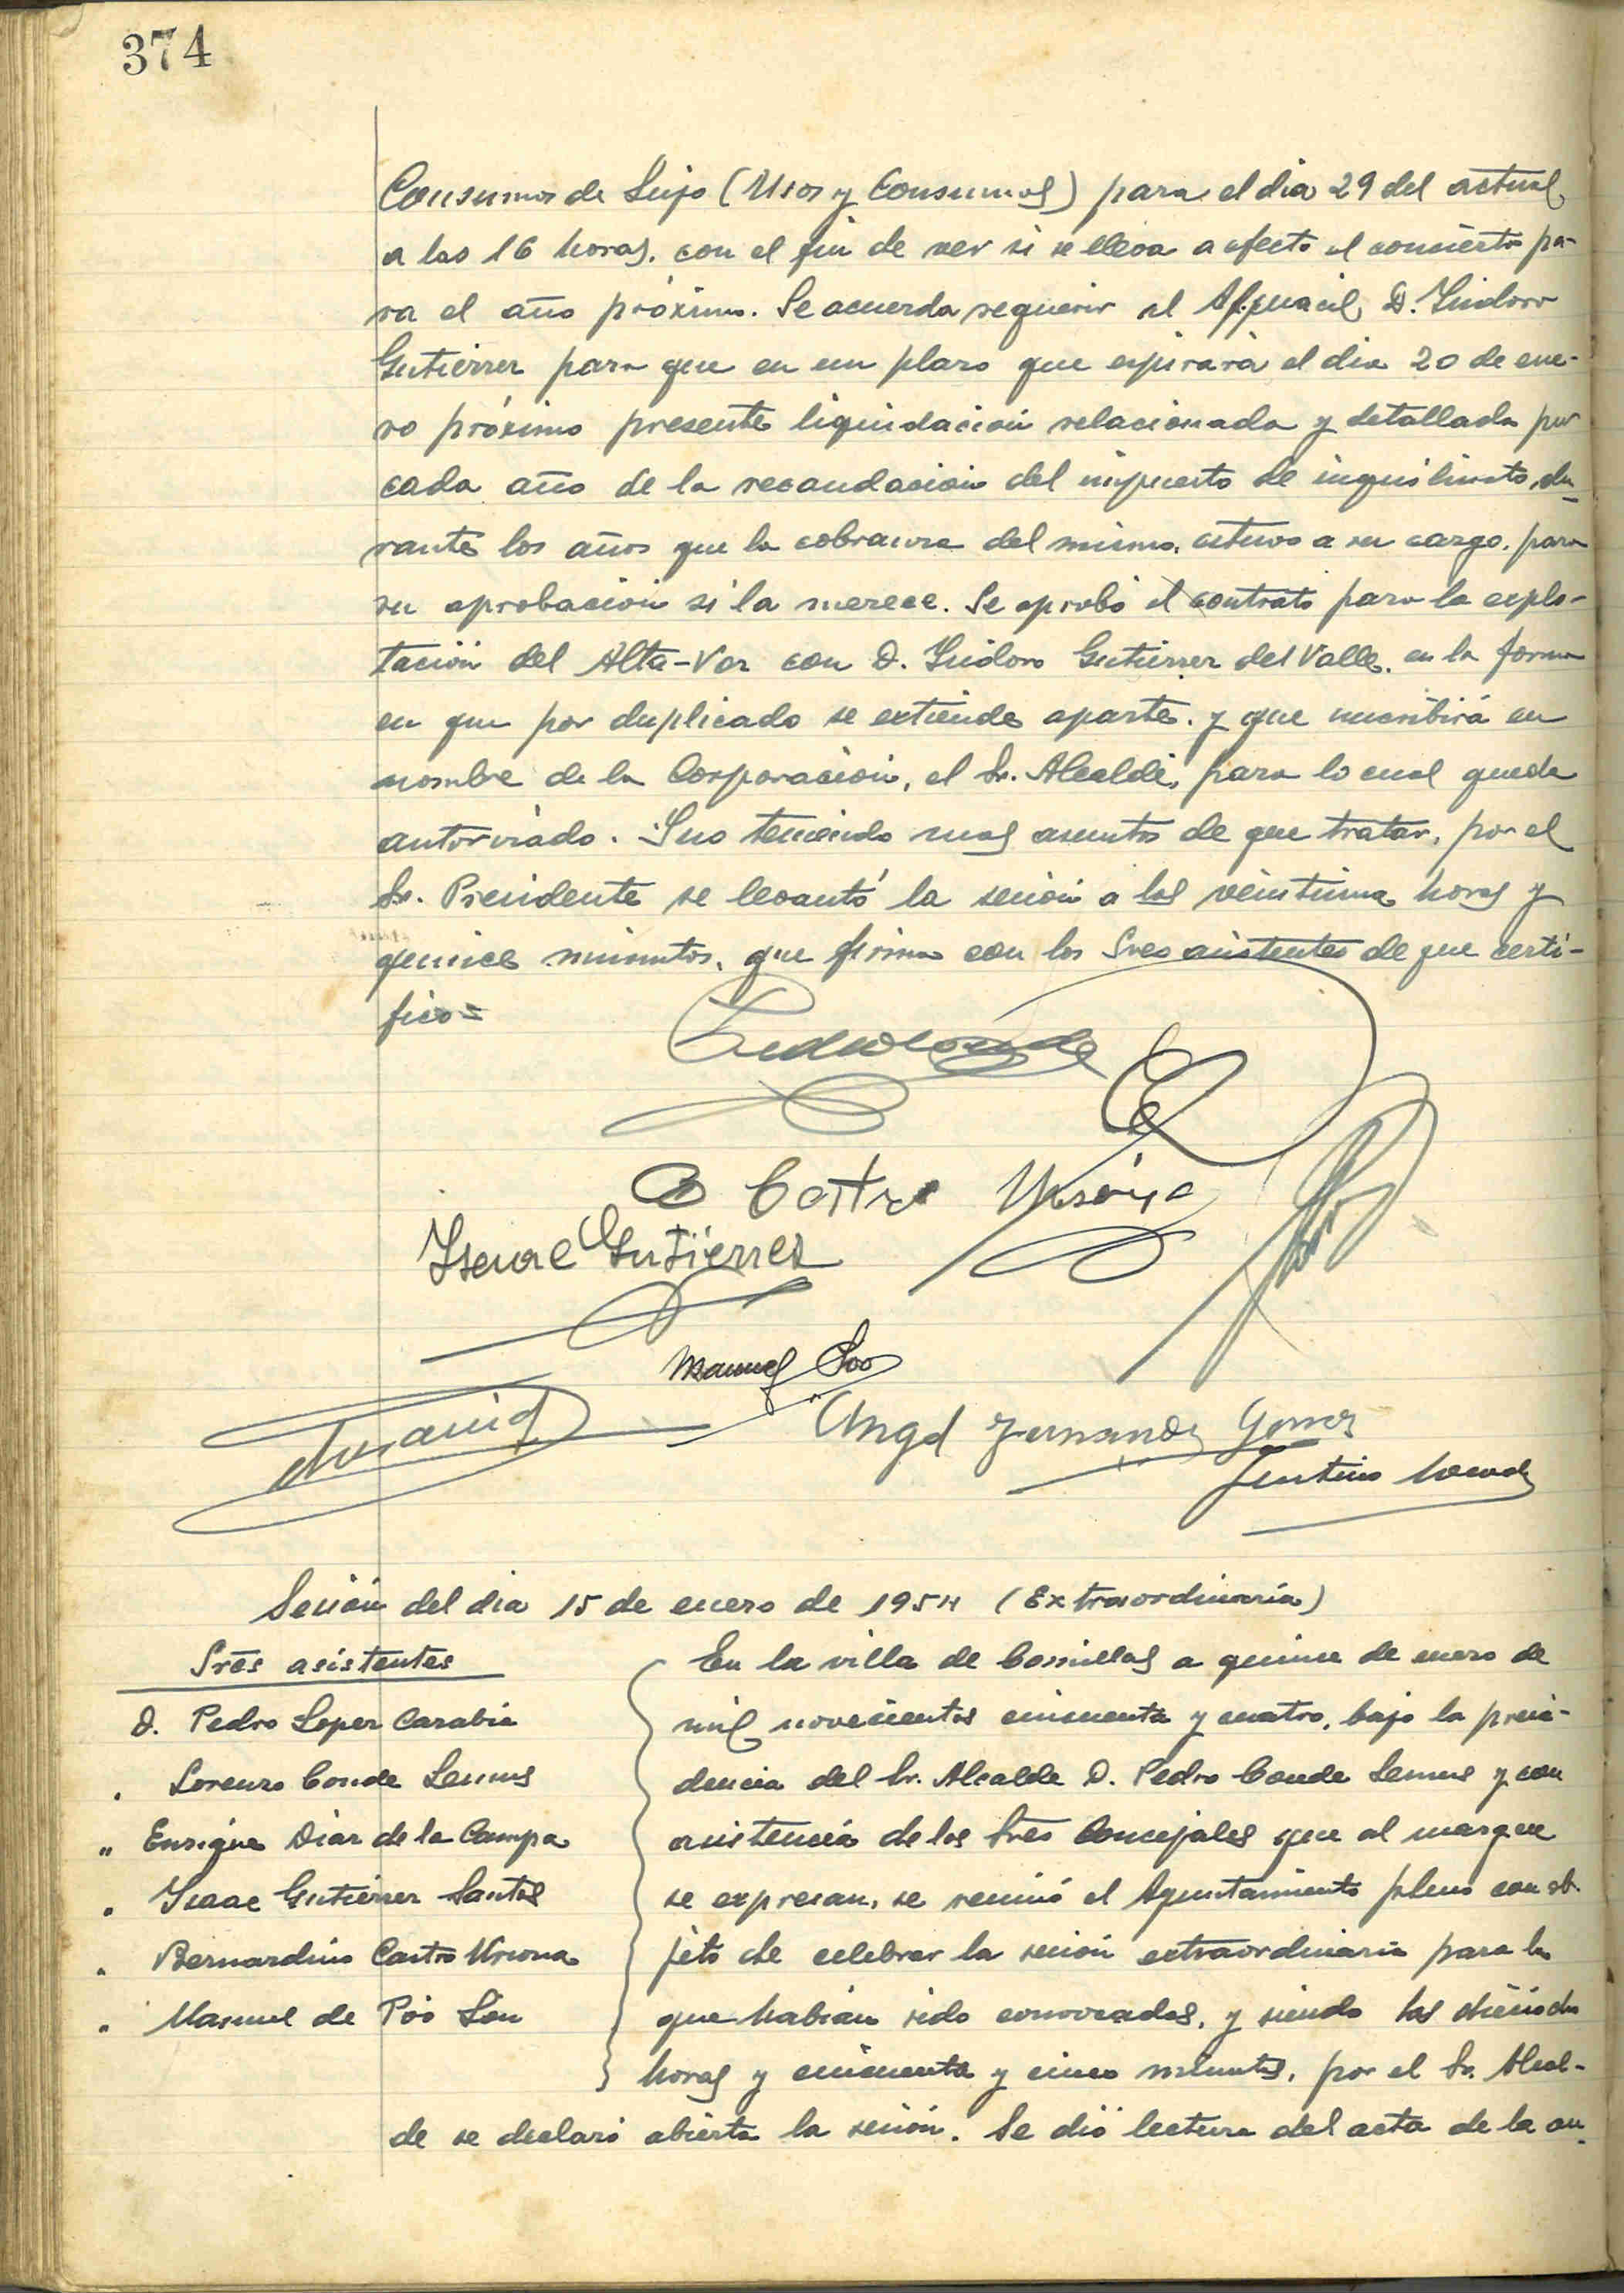 374
Consumos de Lujo (Usos y Consumos) para el dia 29 del actual,
a las 16 horas, con el fin de ver si se lleva a efecto el concierto pa-
ra el año próximo. Se acuerda requerir al Alguacil, D. Isidoro
Gutiérrez para que en un plazo que expirará el dia 20 de ene-
ro próximo presente liquidación relacionada y detallada por
cada año de la recaudación del impuesto de inquilinato, du-
rante los años que la cobranza del mismo, estuvo a su cargo, para
su aprobación si la merece. Se aprobó el contrato para la explo-
tación del Alta-Voz con D. Isidoro Gutiérrez del Valle, en la forma
en que por duplicado se extiende aparte, y que suscribirá en
nombre de la Corporación, el Sr. Alcalde, para lo cual queda
autorizado. Y no teniendo mas asuntos de que tratar, por el
Sr. Presidente se levantó la sesión a las veintiuna horas y
quince minutos, que firma con los Sres asistentes de que certi-
fico=
Pedro Conde
B Castro Ursona
Isaac Gutierrez
Manuel Poo
Angel Fernandez Gomez
Sesión del dia 15 de enero de 1954 (Extraordinaria)
Sres asistentes
D. Pedro Lopez Carabia
" Lorenzo Conde Lemus
" Enrique Diaz de la Campa
" Isaac Gutiérrez Santos
" Bernardino Castro Ursona
" Manuel de Poo
En la villa de Comillas a quince de enero de
mil novecientos cincuenta y cuatro, bajo la presi-
dencia del Sr. Alcalde D. Pedro Conde Lemus y con
asistencia de los Sres Concejales que al margen
se expresan, se reunió el Ayuntamiento pleno con ob-
jeto de celebrar la sesión extraordinaria para la
que habian sido convocados, y siendo las dieciocho
horas y cincuenta y cinco minutos, por el Sr. Alcal-
de se declaró abierta la sesión. Se dió lectura del acta de la an-